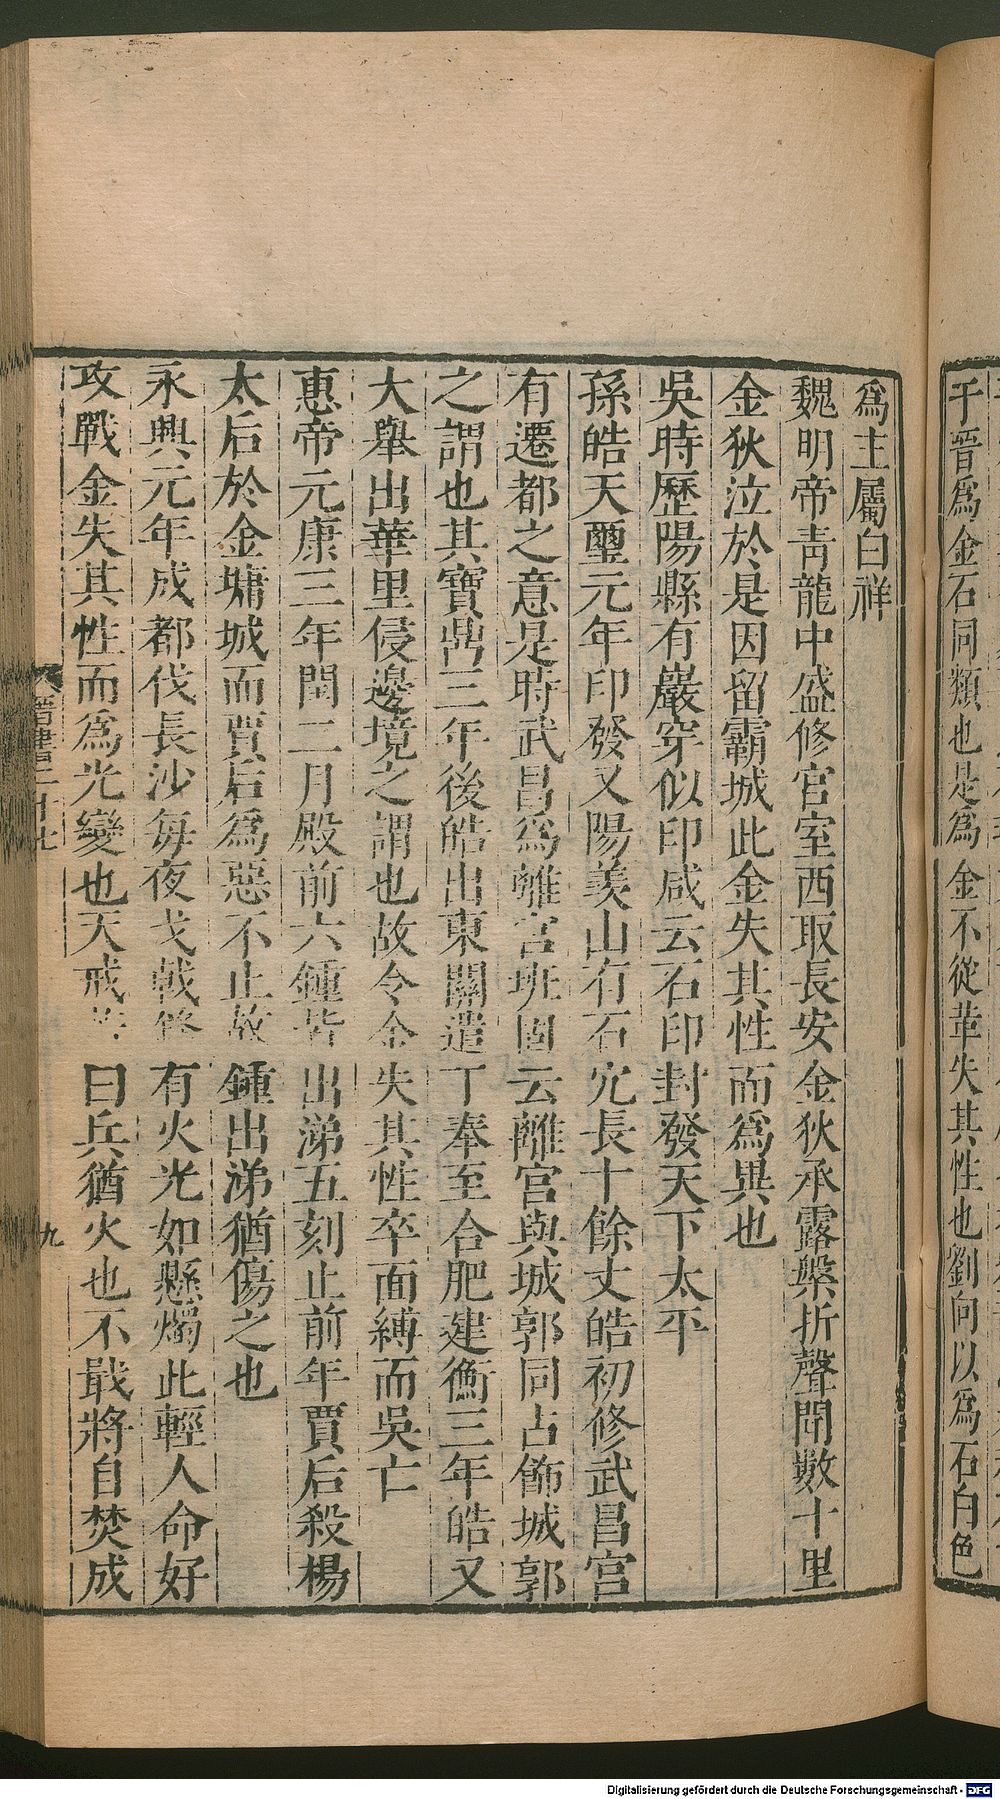 于晉爲金石同類也是爲金不從革失其性也劉向以爲石白色
爲主屬白祥
魏明帝青龍中盛修宮室西取長安金狄承露槃折聲聞數十里
金狄泣於是因留霸城此金失其性而爲異也
吳時歷陽縣有巖穿似印咸云石印封發天下太平
孫皓天璽元年印發又陽羨山有石穴長十餘丈皓初修武昌宮
有遷都之意是時武昌爲離宮班固云離宮與城郭同占飾城郭
之謂也其寶鼎三年後皓出東關遣丁奉至合肥建衡三年皓又
大舉出華里侵邊境之謂也故令金失其性卒面縛而吳亡
惠帝元康三年閏二月殿前六鍾皆出涕五刻止前年賈后殺楊
太后於金墉城而賈后爲惡不止故鍾出涕猶傷之也
永興元年成都伐長沙每夜戈戟鋒有火光如懸燭此輕人命好
攻戰金失其性而爲光變也天戒若曰兵猶火也不戢將自焚成
晉書二十七
九
Digitalisierung gefördert durch die Deutsche Forschungsgemeinschaft - DFG